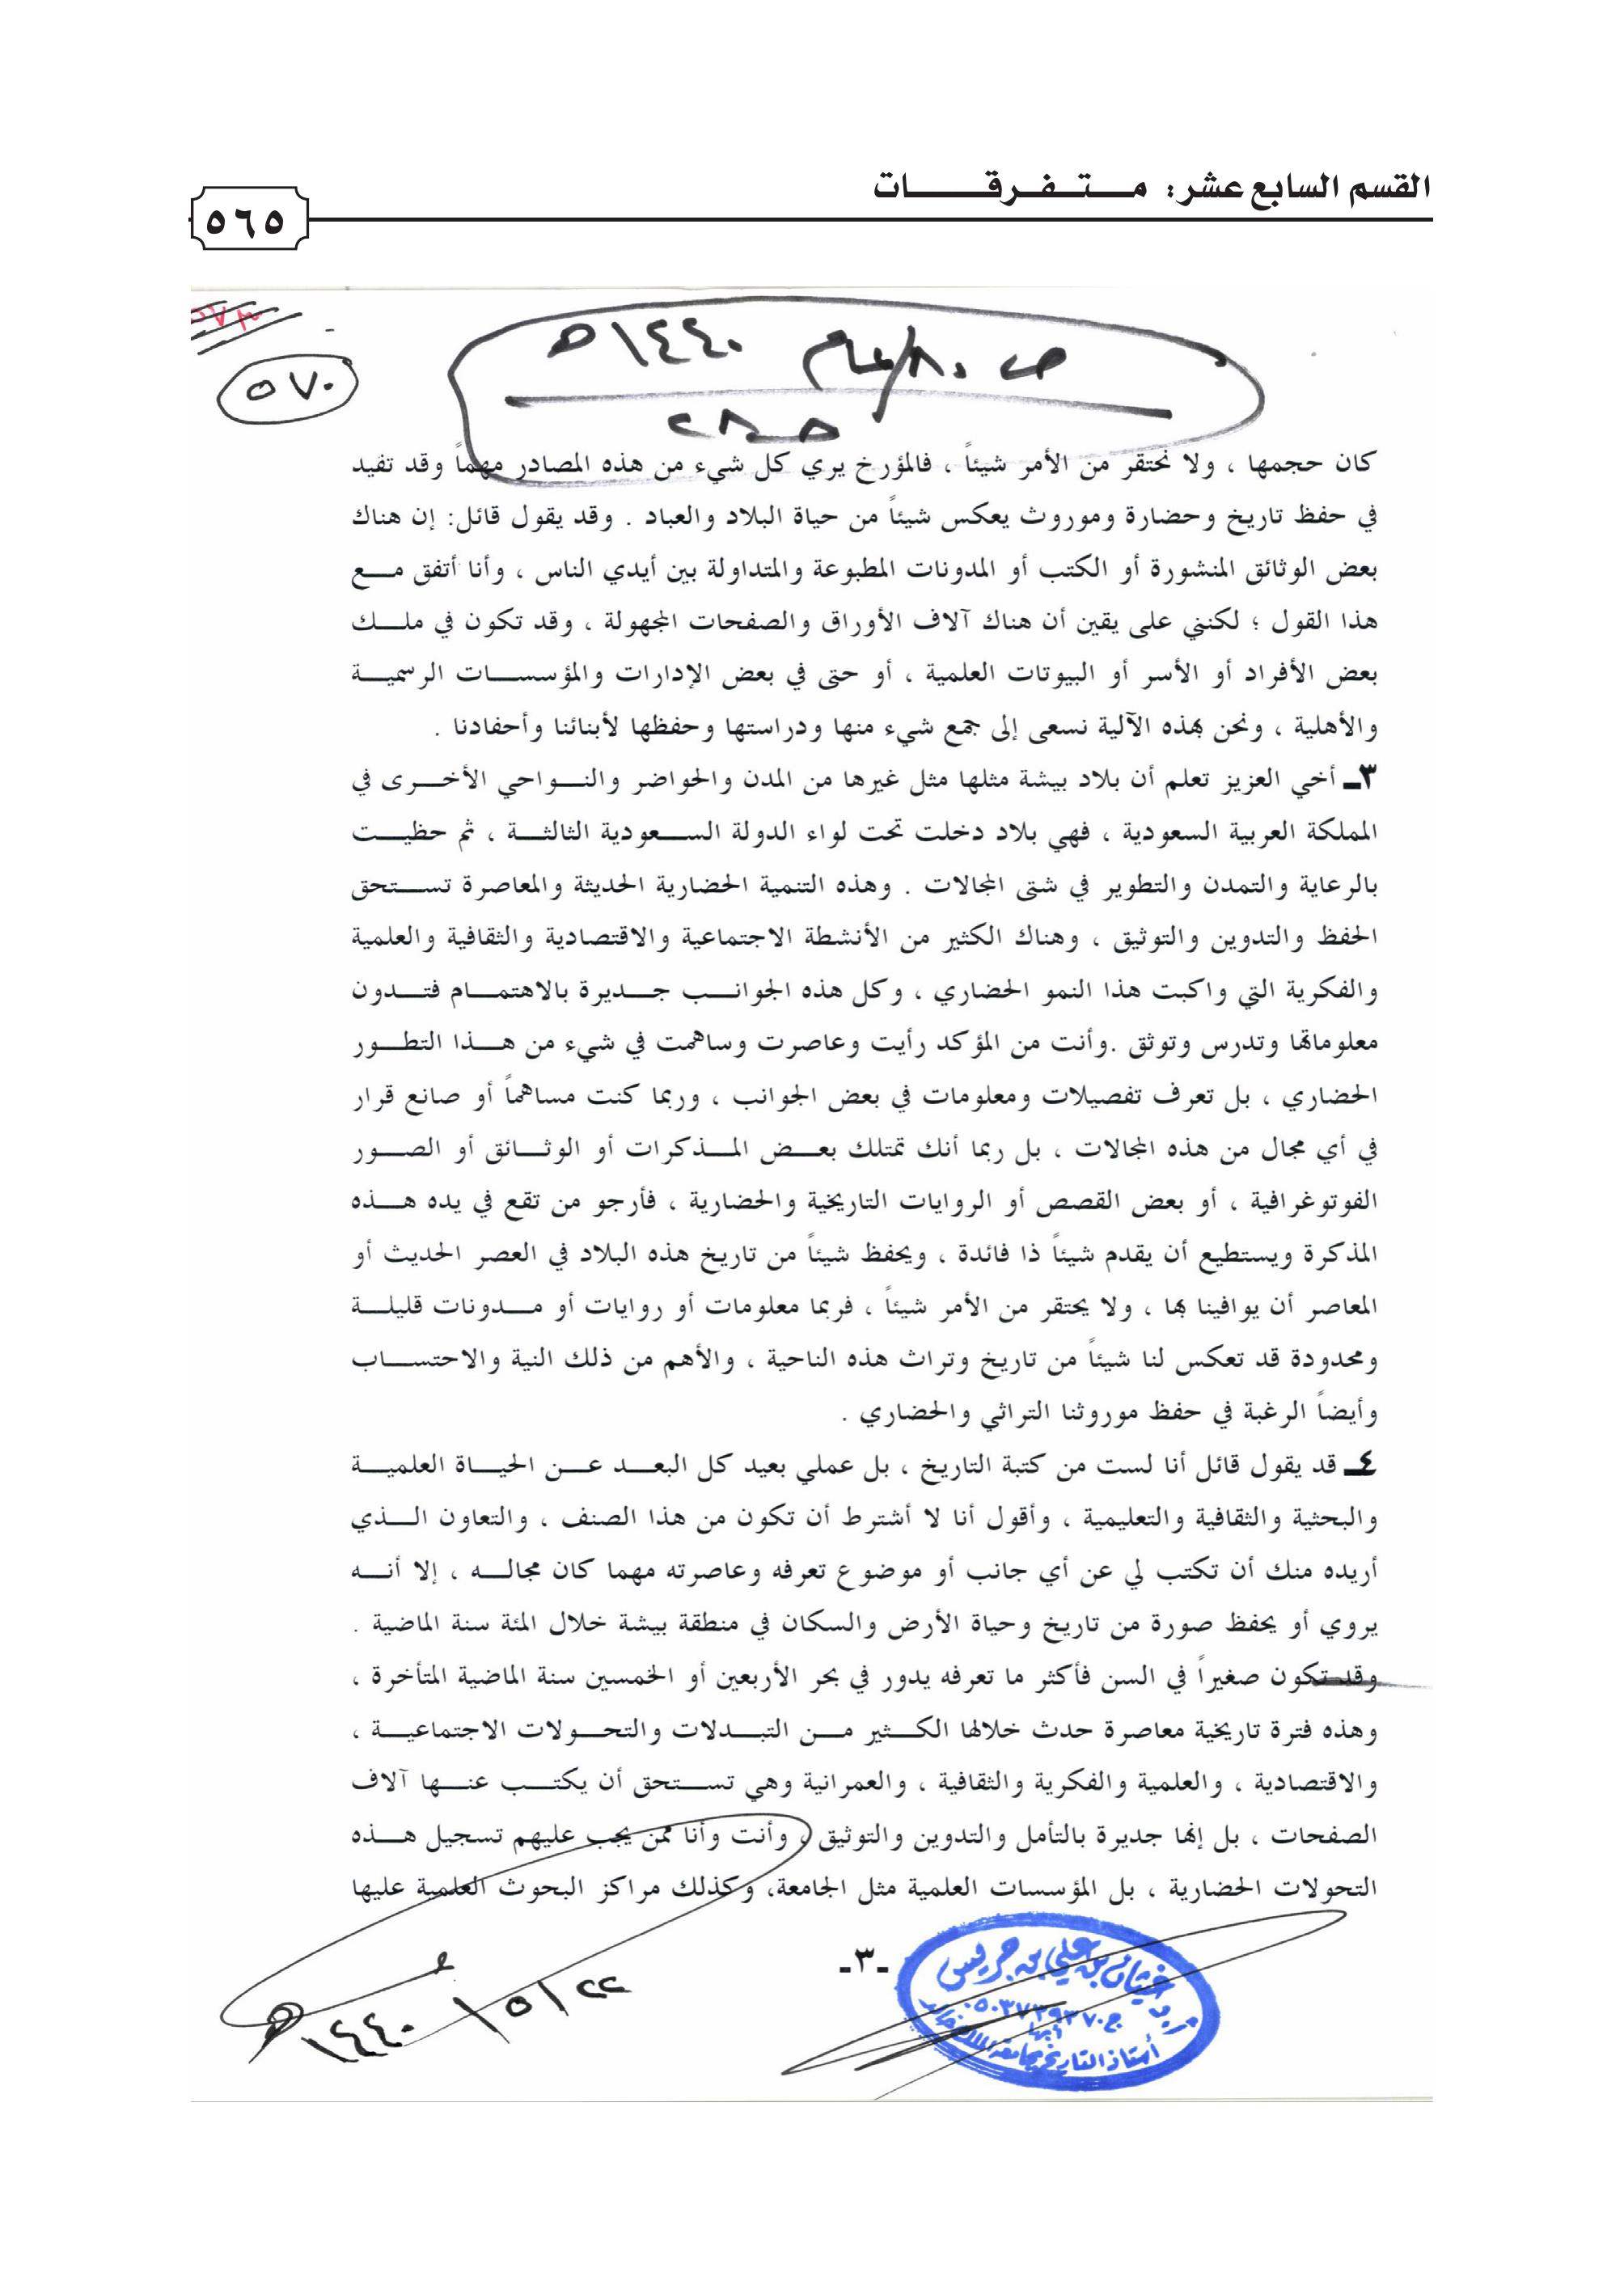 القسم السابع عشر: متفرقات
٥٦٥
ص ٨٠/عام ١٤٤٠هـ
٥٧٠
كان حجمها ، ولا نحتقر من الأمر شيئاً ، فالمؤرخ يري كل شيء من هذه المصادر مهماً وقد تفيد
في حفظ تاريخ وحضارة وموروث يعكس شيئاً من حياة البلاد والعباد . وقد يقول قائل: إن هناك
بعض الوثائق المنشورة أو الكتب أو المدونات المطبوعة والمتداولة بين أيدي الناس ، وأنا أتفق مع
هذا القول ؛ لكنني على يقين أن هناك آلاف الأوراق والصفحات المجهولة ، وقد تكون في ملك
بعض الأفراد أو الأسر أو البيوتات العلمية ، أو حتى في بعض الإدارات والمؤسسات الرسمية
والأهلية ، ونحن بهذه الآلية نسعى إلى جمع شيء منها ودراستها وحفظها لأبنائنا وأحفادنا .
٣ـ أخي العزيز تعلم أن بلاد بيشة مثلها مثل غيرها من المدن والحواضر والنواحي الأخرى في
المملكة العربية السعودية ، فهي بلاد دخلت تحت لواء الدولة السعودية الثالثة ، ثم حظيت
بالرعاية والتمدن والتطوير في شتى المجالات . وهذه التنمية الحضارية الحديثة والمعاصرة تستحق
الحفظ والتدوين والتوثيق ، وهناك الكثير من الأنشطة الاجتماعية والاقتصادية والثقافية والعلمية
والفكرية التي واكبت هذا النمو الحضاري ، وكل هذه الجوانب جديرة بالاهتمام فتدون
معلوماتها وتدرس وتوثق .وأنت من المؤكد رأيت وعاصرت وساهمت في شيء من هذا التطور
الحضاري ، بل تعرف تفصيلات ومعلومات في بعض الجوانب ، وربما كنت مساهماً أو صانع قرار
في أي مجال من هذه المجالات ، بل ربما أنك تمتلك بعض المذكرات أو الوثائق أو الصور
الفوتوغرافية ، أو بعض القصص أو الروايات التاريخية والحضارية ، فأرجو من تقع في يده هذه
المذكرة ويستطيع أن يقدم شيئاً ذا فائدة ، ويحفظ شيئاً من تاريخ هذه البلاد في العصر الحديث أو
المعاصر أن يوافينا بها ، ولا يحتقر من الأمر شيئاً ، فربما معلومات أو روايات أو مدونات قليلة
ومحدودة قد تعكس لنا شيئاً من تاريخ وتراث هذه الناحية ، والأهم من ذلك النية والاحتساب
وأيضاً الرغبة في حفظ موروثنا التراثي والحضاري .
٤ـ قد يقول قائل أنا لست من كتبة التاريخ ، بل عملي بعيد كل البعد عن الحياة العلمية
والبحثية والثقافية والتعليمية ، وأقول أنا لا أشترط أن تكون من هذا الصنف ، والتعاون الذي
أريده منك أن تكتب لي عن أي جانب أو موضوع تعرفه وعاصرته مهما كان مجاله ، إلا أنه
يروي أو يحفظ صورة من تاريخ وحياة الأرض والسكان في منطقة بيشة خلال المئة سنة الماضية .
وقد تكون صغيراً في السن فأكثر ما تعرفه يدور في بحر الأربعين أو الخمسين سنة الماضية المتأخرة ،
وهذه فترة تاريخية معاصرة حدث خلالها الكثير من التبدلات والتحولات الاجتماعية ،
والاقتصادية ، والعلمية والفكرية والثقافية ، والعمرانية وهي تستحق أن يكتب عنها آلاف
الصفحات ، بل إنها جديرة بالتأمل والتدوين والتوثيق ، وأنت وأنا ممن يجب عليهم تسجيل هذه
التحولات الحضارية ، بل المؤسسات العلمية مثل الجامعة، وكذلك مراكز البحوث العلمية عليها
ـ٣ـ
أ.د. غيثان بن علي بن جريس
ج٠٥٠٣٧٣٩٣٧٠
أبها
أستاذ التاريخ بجامعة الملك خالد
٢٢/٥/١٤٤٠هـ